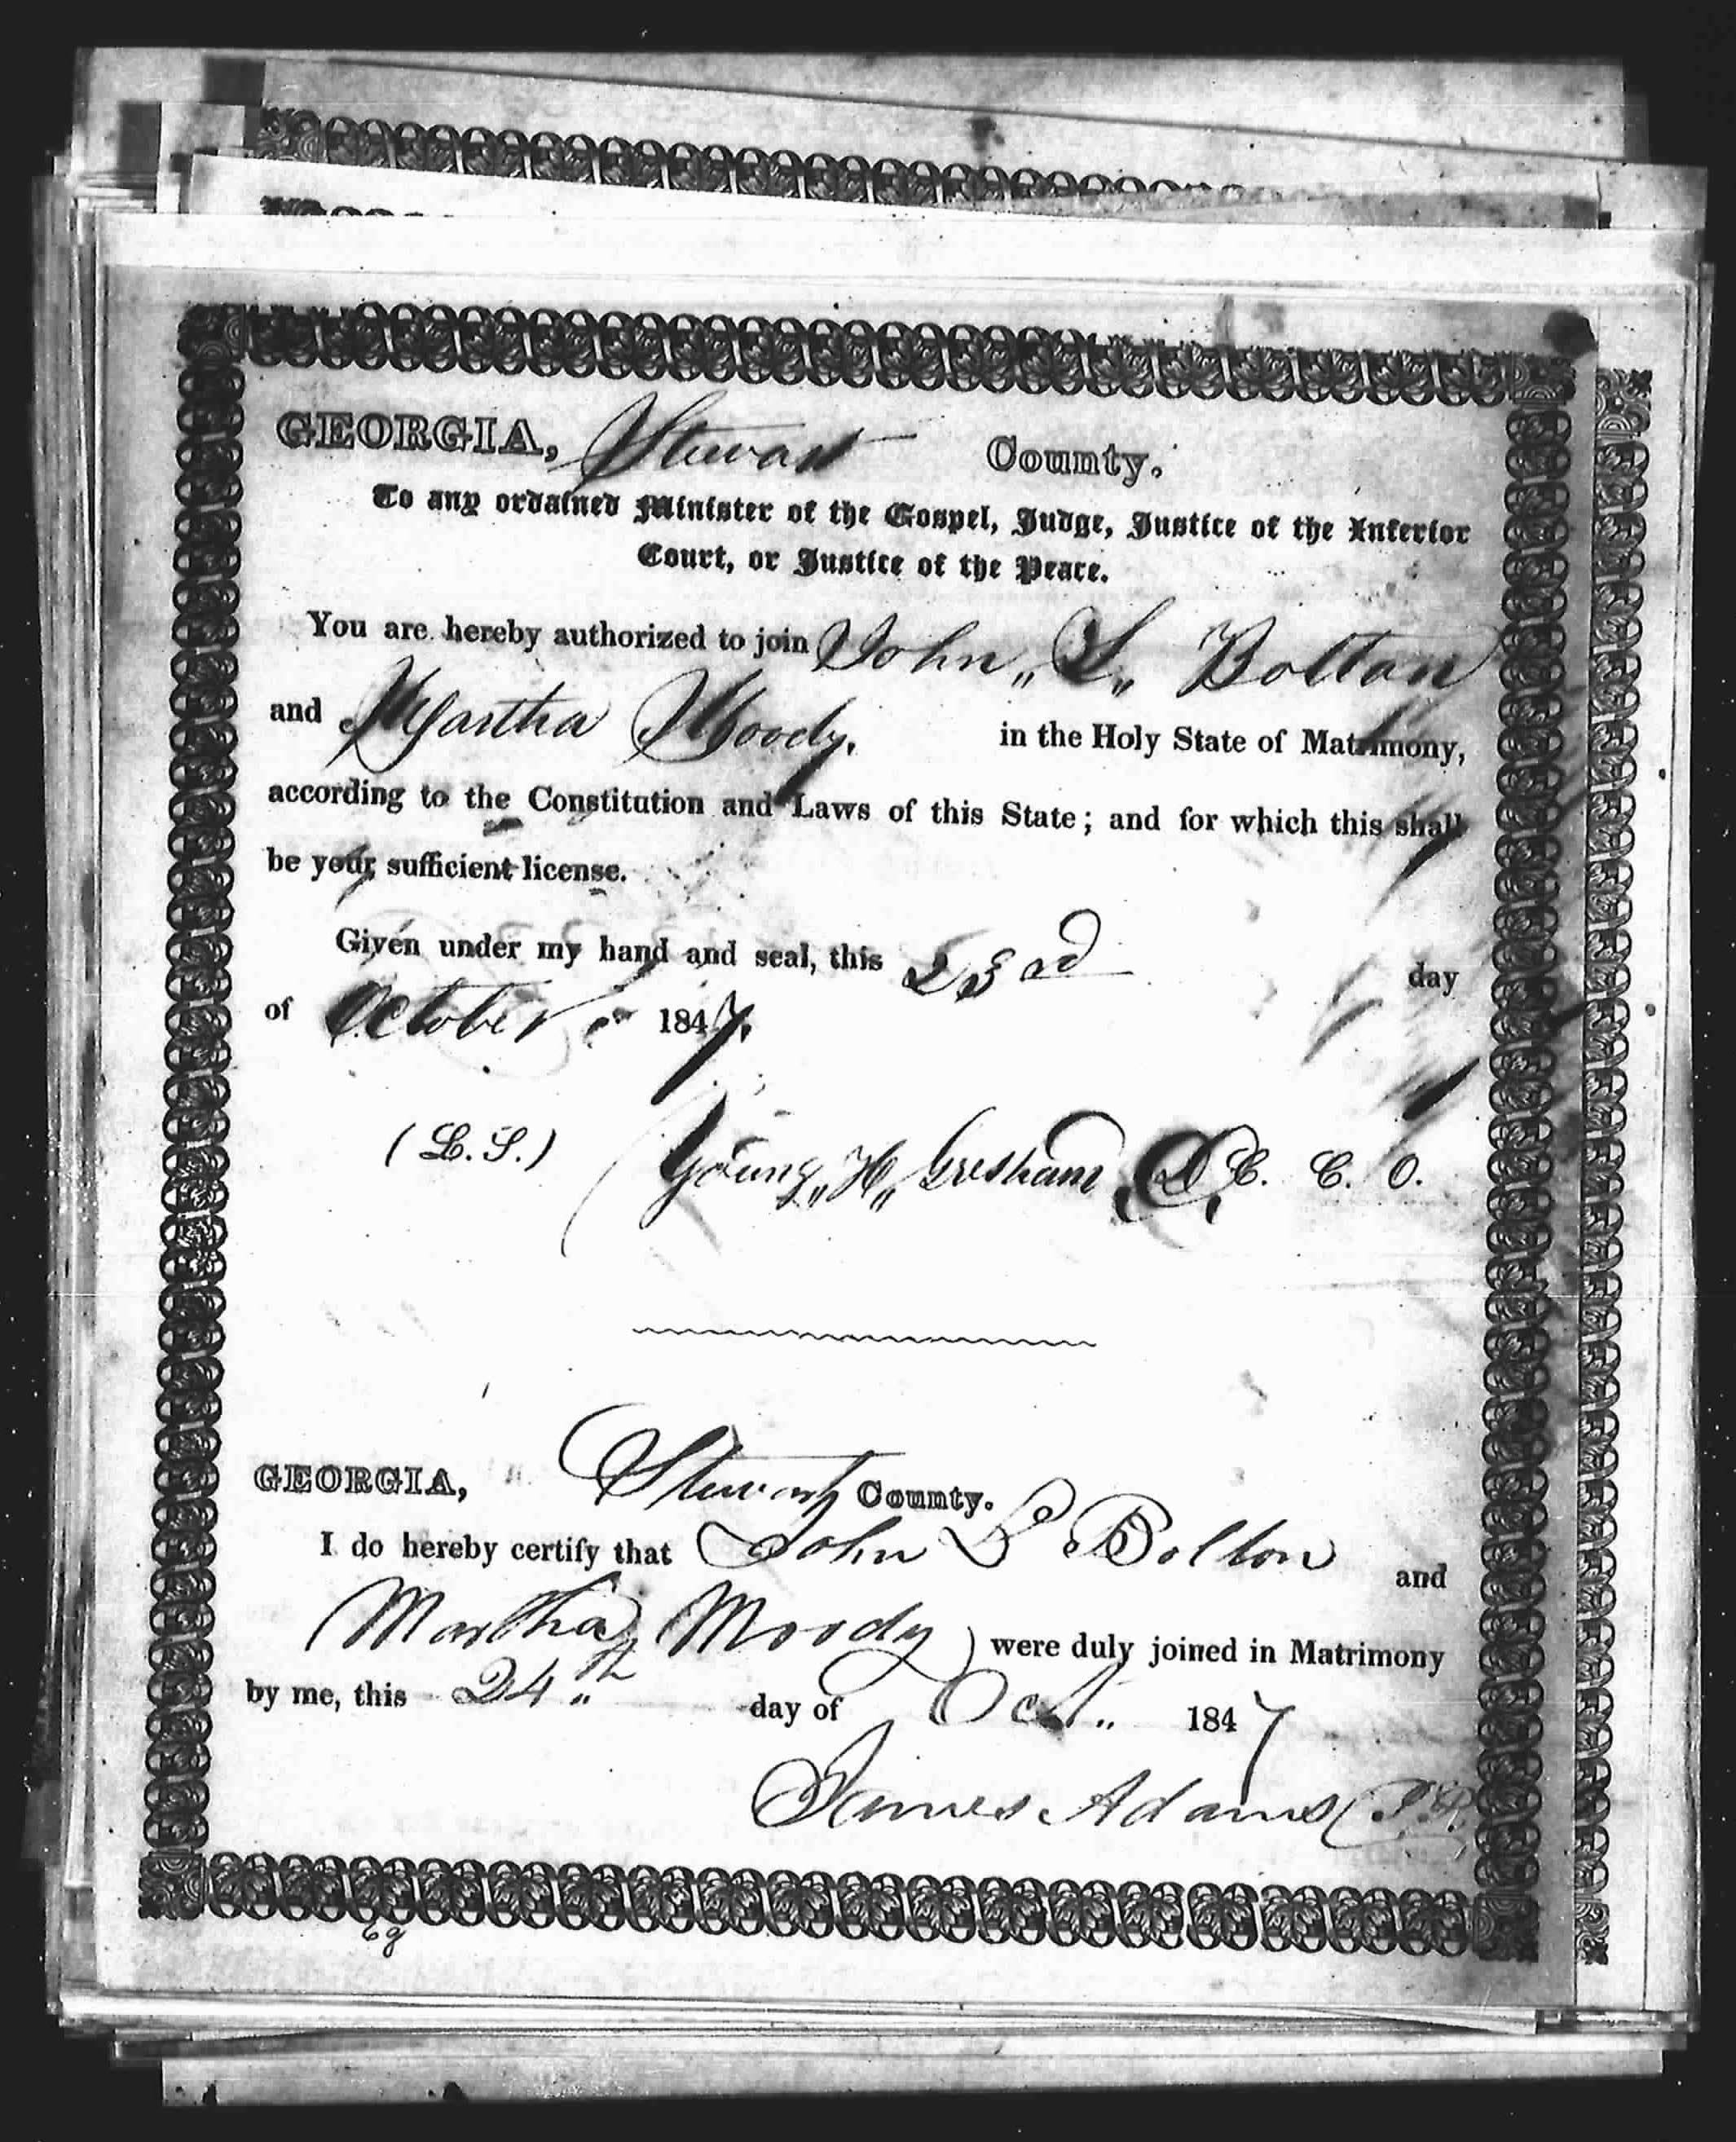 GEORGIA, Stewart County.
To any ordained Minister of the Gospel, Judge, Justice of the Inferior
Court, or Justice of the Peace.
You are hereby authorized to join John „ L „ Bolton
and Martha Moody, in the Holy State of Matrimony,
according to the Constitution and Laws of this State; and for which this shall
be your sufficient license.
Given under my hand and seal, this 23rd day
of October 1847.
(L.S.) Young „ H „ Gresham, D, C. C. O.
GEORGIA, Stewart County.
I do hereby certify that John L Bolton and
Martha Moody were duly joined in Matrimony
by me, this 24th day of Oct 1847
James Adams J.P.